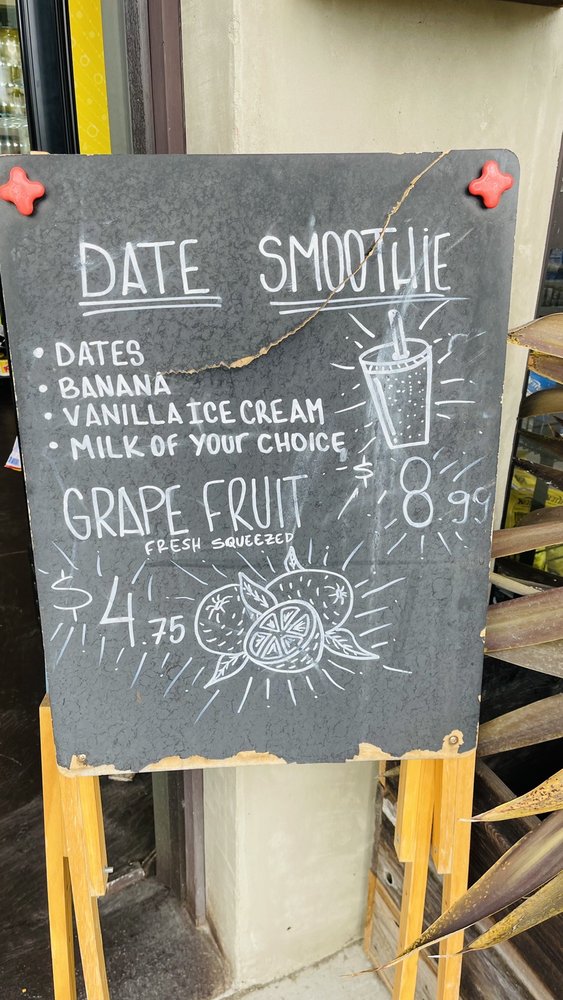 DATE SMOOTHIE
• DATES
• BANANA
• VANILLA ICE CREAM
• MILK OF YOUR CHOICE
$8.99
GRAPE FRUIT
FRESH SQUEEZED
$4.75